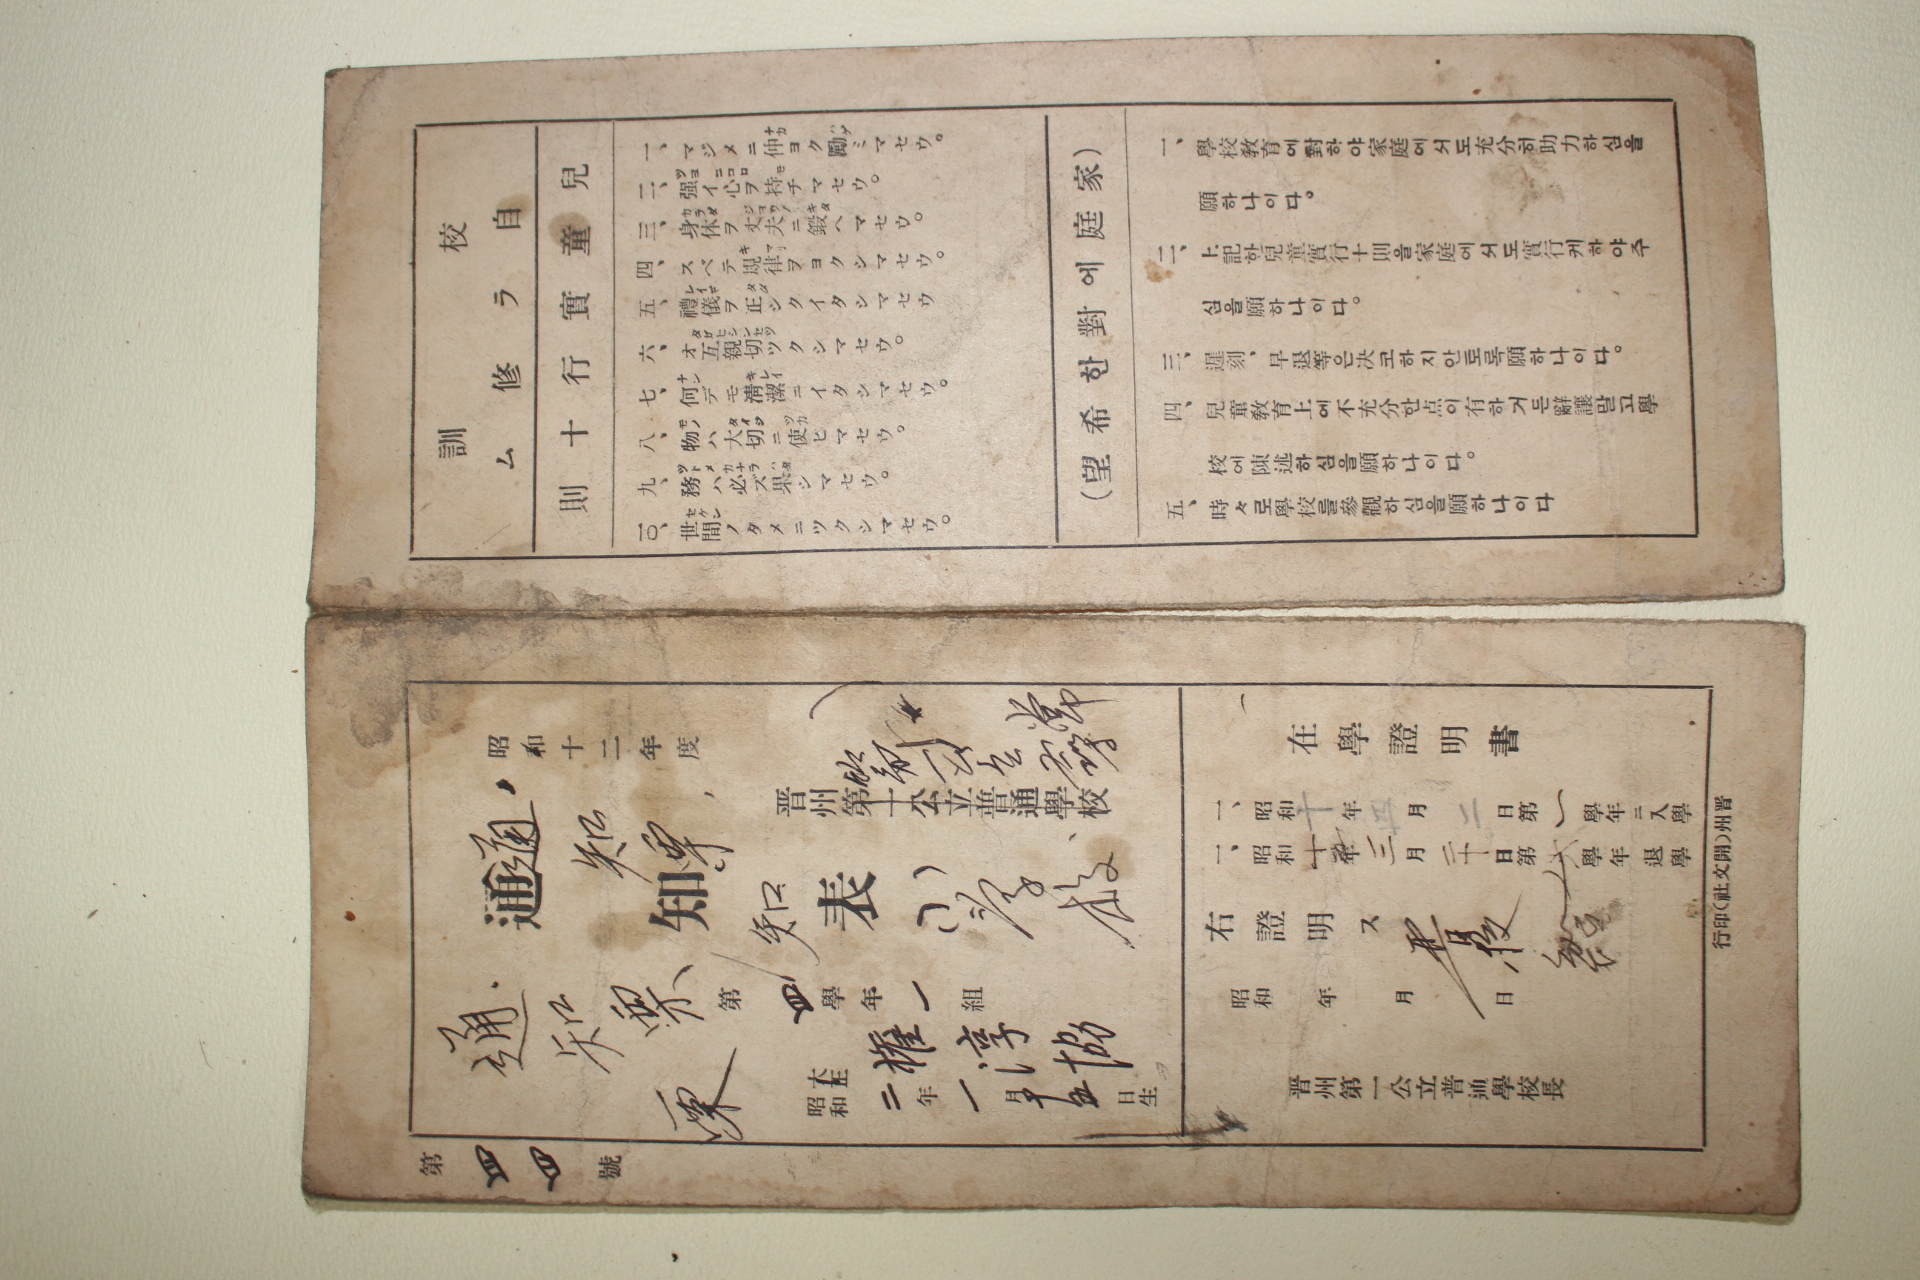 昭和十二年度
通知表
晋州第一公立普通學校
第四學年一組
權淳協
昭和 大正 二年一月十五日生
第四四號
通知
通知票
知
學校
在學證明書
一、昭和十年四月二日第一學年ニ入學
一、昭和十年三月三十日第六學年退學
右證明ス
昭和 年 月 日
晋州第一公立普通學校長
晋州(開文社)印行
校訓
自ラ修ム
兒童實行十則
一、マジメニ仲ヨク勵ミマセウ。
二、强イ心ヲ持チマセウ。
三、身体ヲ丈夫ニ鍛ヘマセウ。
四、スベテ規律ヲヨクシマセウ。
五、禮儀ヲ正シクイタシマセウ
六、オ互親切ツクシマセウ。
七、何デモ淸潔ニイタシマセウ。
八、物ハ大切ニ使ヒマセウ。
九、務ハ必ズ果シマセウ。
一〇、世間ノタメニツクシマセウ。
(家庭에對한希望)
一、學校敎育에對하야家庭에서도充分히助力하심을
願하나이다。
二、上記한兒童實行十則을家庭에서도實行케하야주
심을願하나이다。
三、遲刻、早退等은决코하지안토록願하나이다。
四、兒童敎育上에不充分한点이有하거든辭讓말고學
校에陳述하심을願하나이다。
五、時々로學校를參觀하심을願하나이다